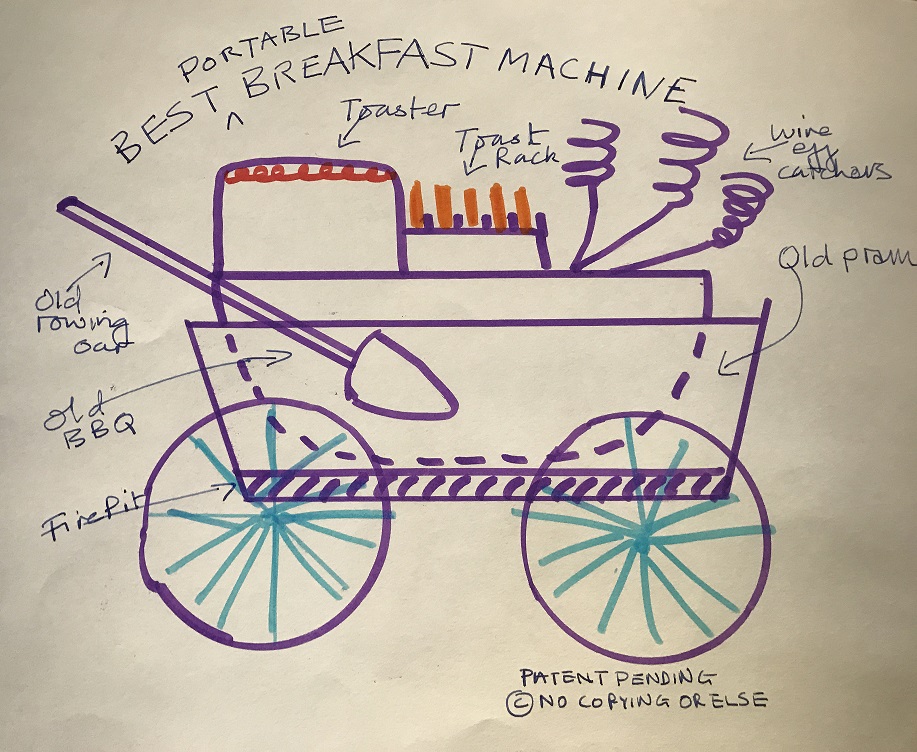 PORTABLE
BEST ^ BREAKFAST MACHINE
Toaster
Toast
Rack
wire
egg
catchers
Old pram
Old
rowing
oar
Old
BBQ
FirePit
PATENT PENDING
© NO COPYING OR ELSE